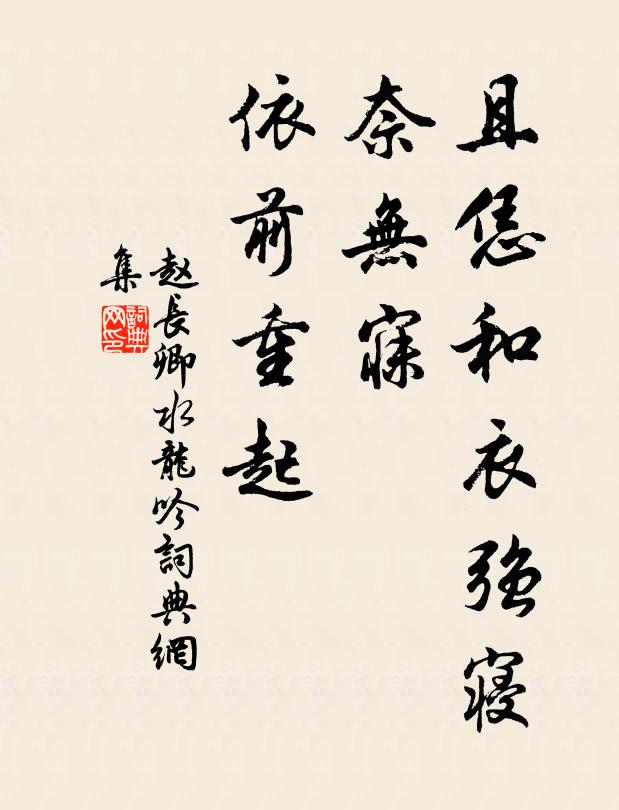 且恁和衣強寢
奈無寐
依前重起
赵長卿水龍吟詞典網
集
詞典網印